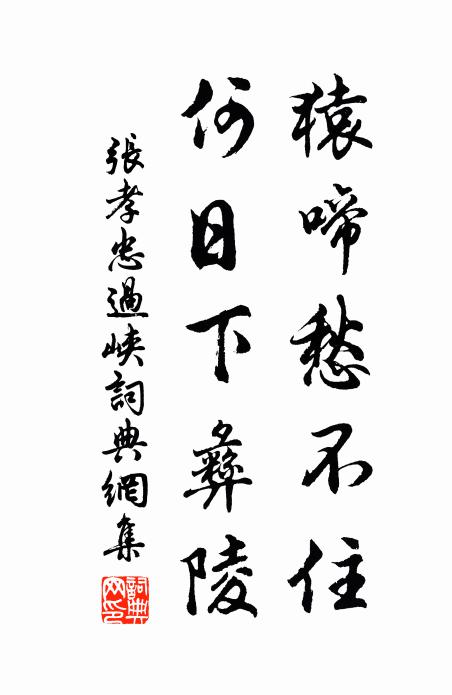 猿啼愁不住
何日下彝陵
張孝忠過峽詞典網集
詞典網印